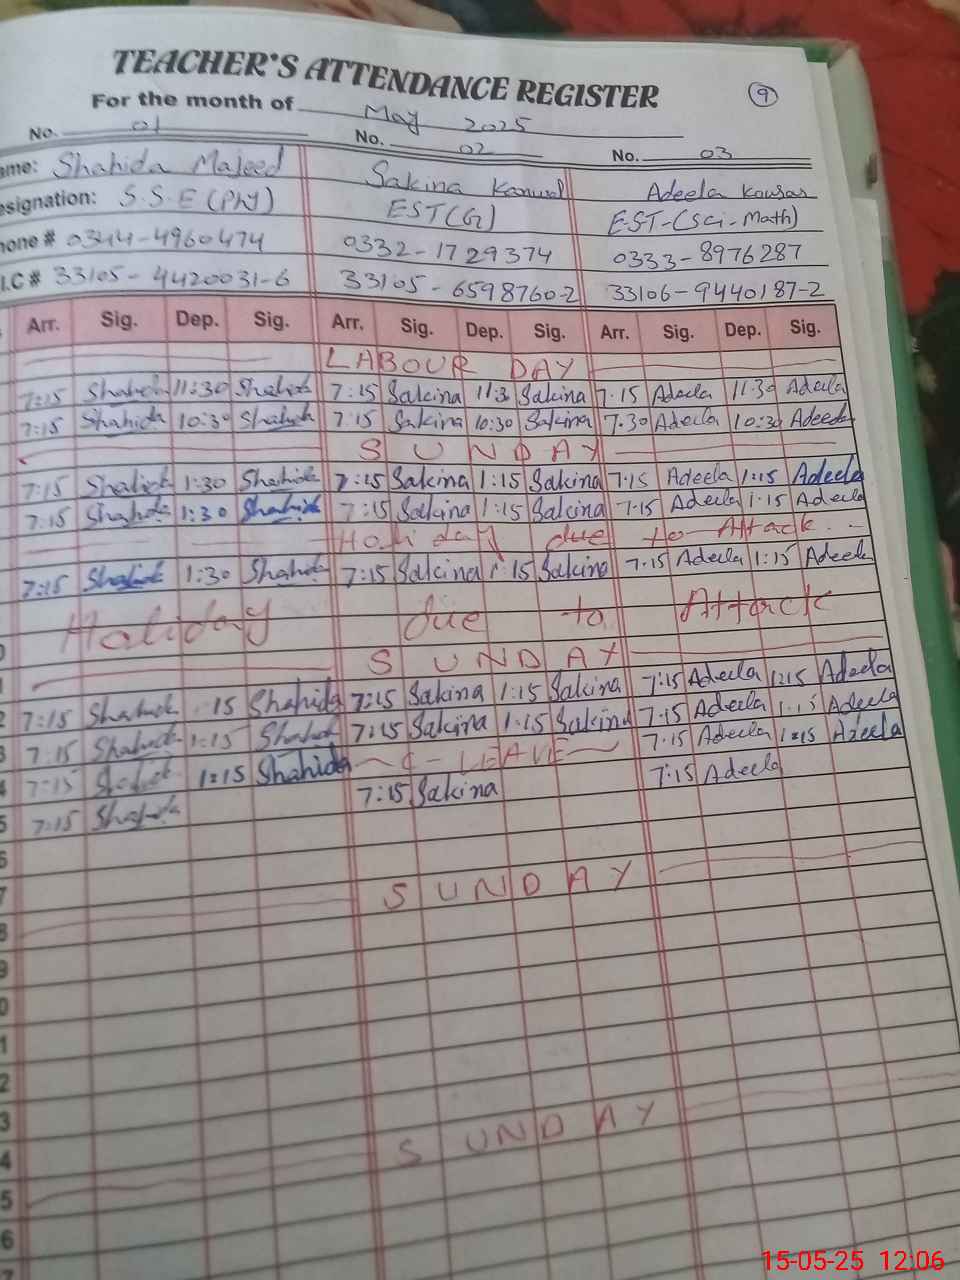 TEACHER'S ATTENDANCE REGISTER
9
For the month of May 2025
No. 01 No. 02 No. 03
ame: Shahida Majeed Sakina Kanwal Adeela Kousar
esignation: S.S.E (Phy) EST(G) EST-(Sci-Math)
hone # 0344-4960474 0332-1729374 0333-8976287
I.C # 33105-4420031-6 33105-6598760-2 33106-9440187-2
Arr. Sig. Dep. Sig. Arr. Sig. Dep. Sig. Arr. Sig. Dep. Sig.
LABOUR DAY
7:15 Shahida 11:30 Shahida 7:15 Sakina 11:3 Sakina 7.15 Adeela 11.30 Adeela
7:15 Shahida 10:30 Shahida 7:15 Sakina 10:30 Sakina 7.30 Adeela 10:30 Adeela
SUNDAY
7:15 Shahida 1:30 Shahida 7:15 Sakina 1:15 Sakina 7.15 Adeela 1:15 Adeela
7:15 Shahida 1:30 Shahida 7:15 Sakina 1:15 Sakina 7.15 Adeela 1.15 Adeela
Holiday due to Attack
7:15 Shahida 1:30 Shahida 7:15 Sakina 1:15 Sakina 7.15 Adeela 1:15 Adeela
Holiday due to Attack
0
SUNDAY
1
7:15 Shahida 15 Shahida 7:15 Sakina 1:15 Sakina 7:15 Adeela 1:15 Adeela
2 7:15 Shahida 1:15 Shahida 7:15 Sakina 1:15 Sakina 7:15 Adeela 1.15 Adeela
3 7:15 Shahida 1:15 Shahida C-LEAVE 7.15 Adeela 1:15 Adeela
4 7:15 Shahida 7:15 Sakina 7:15 Adeela
5
6
7 SUNDAY
8
9
0
1
2
3
4 SUNDAY
5
6
7
15-05-25 12:06